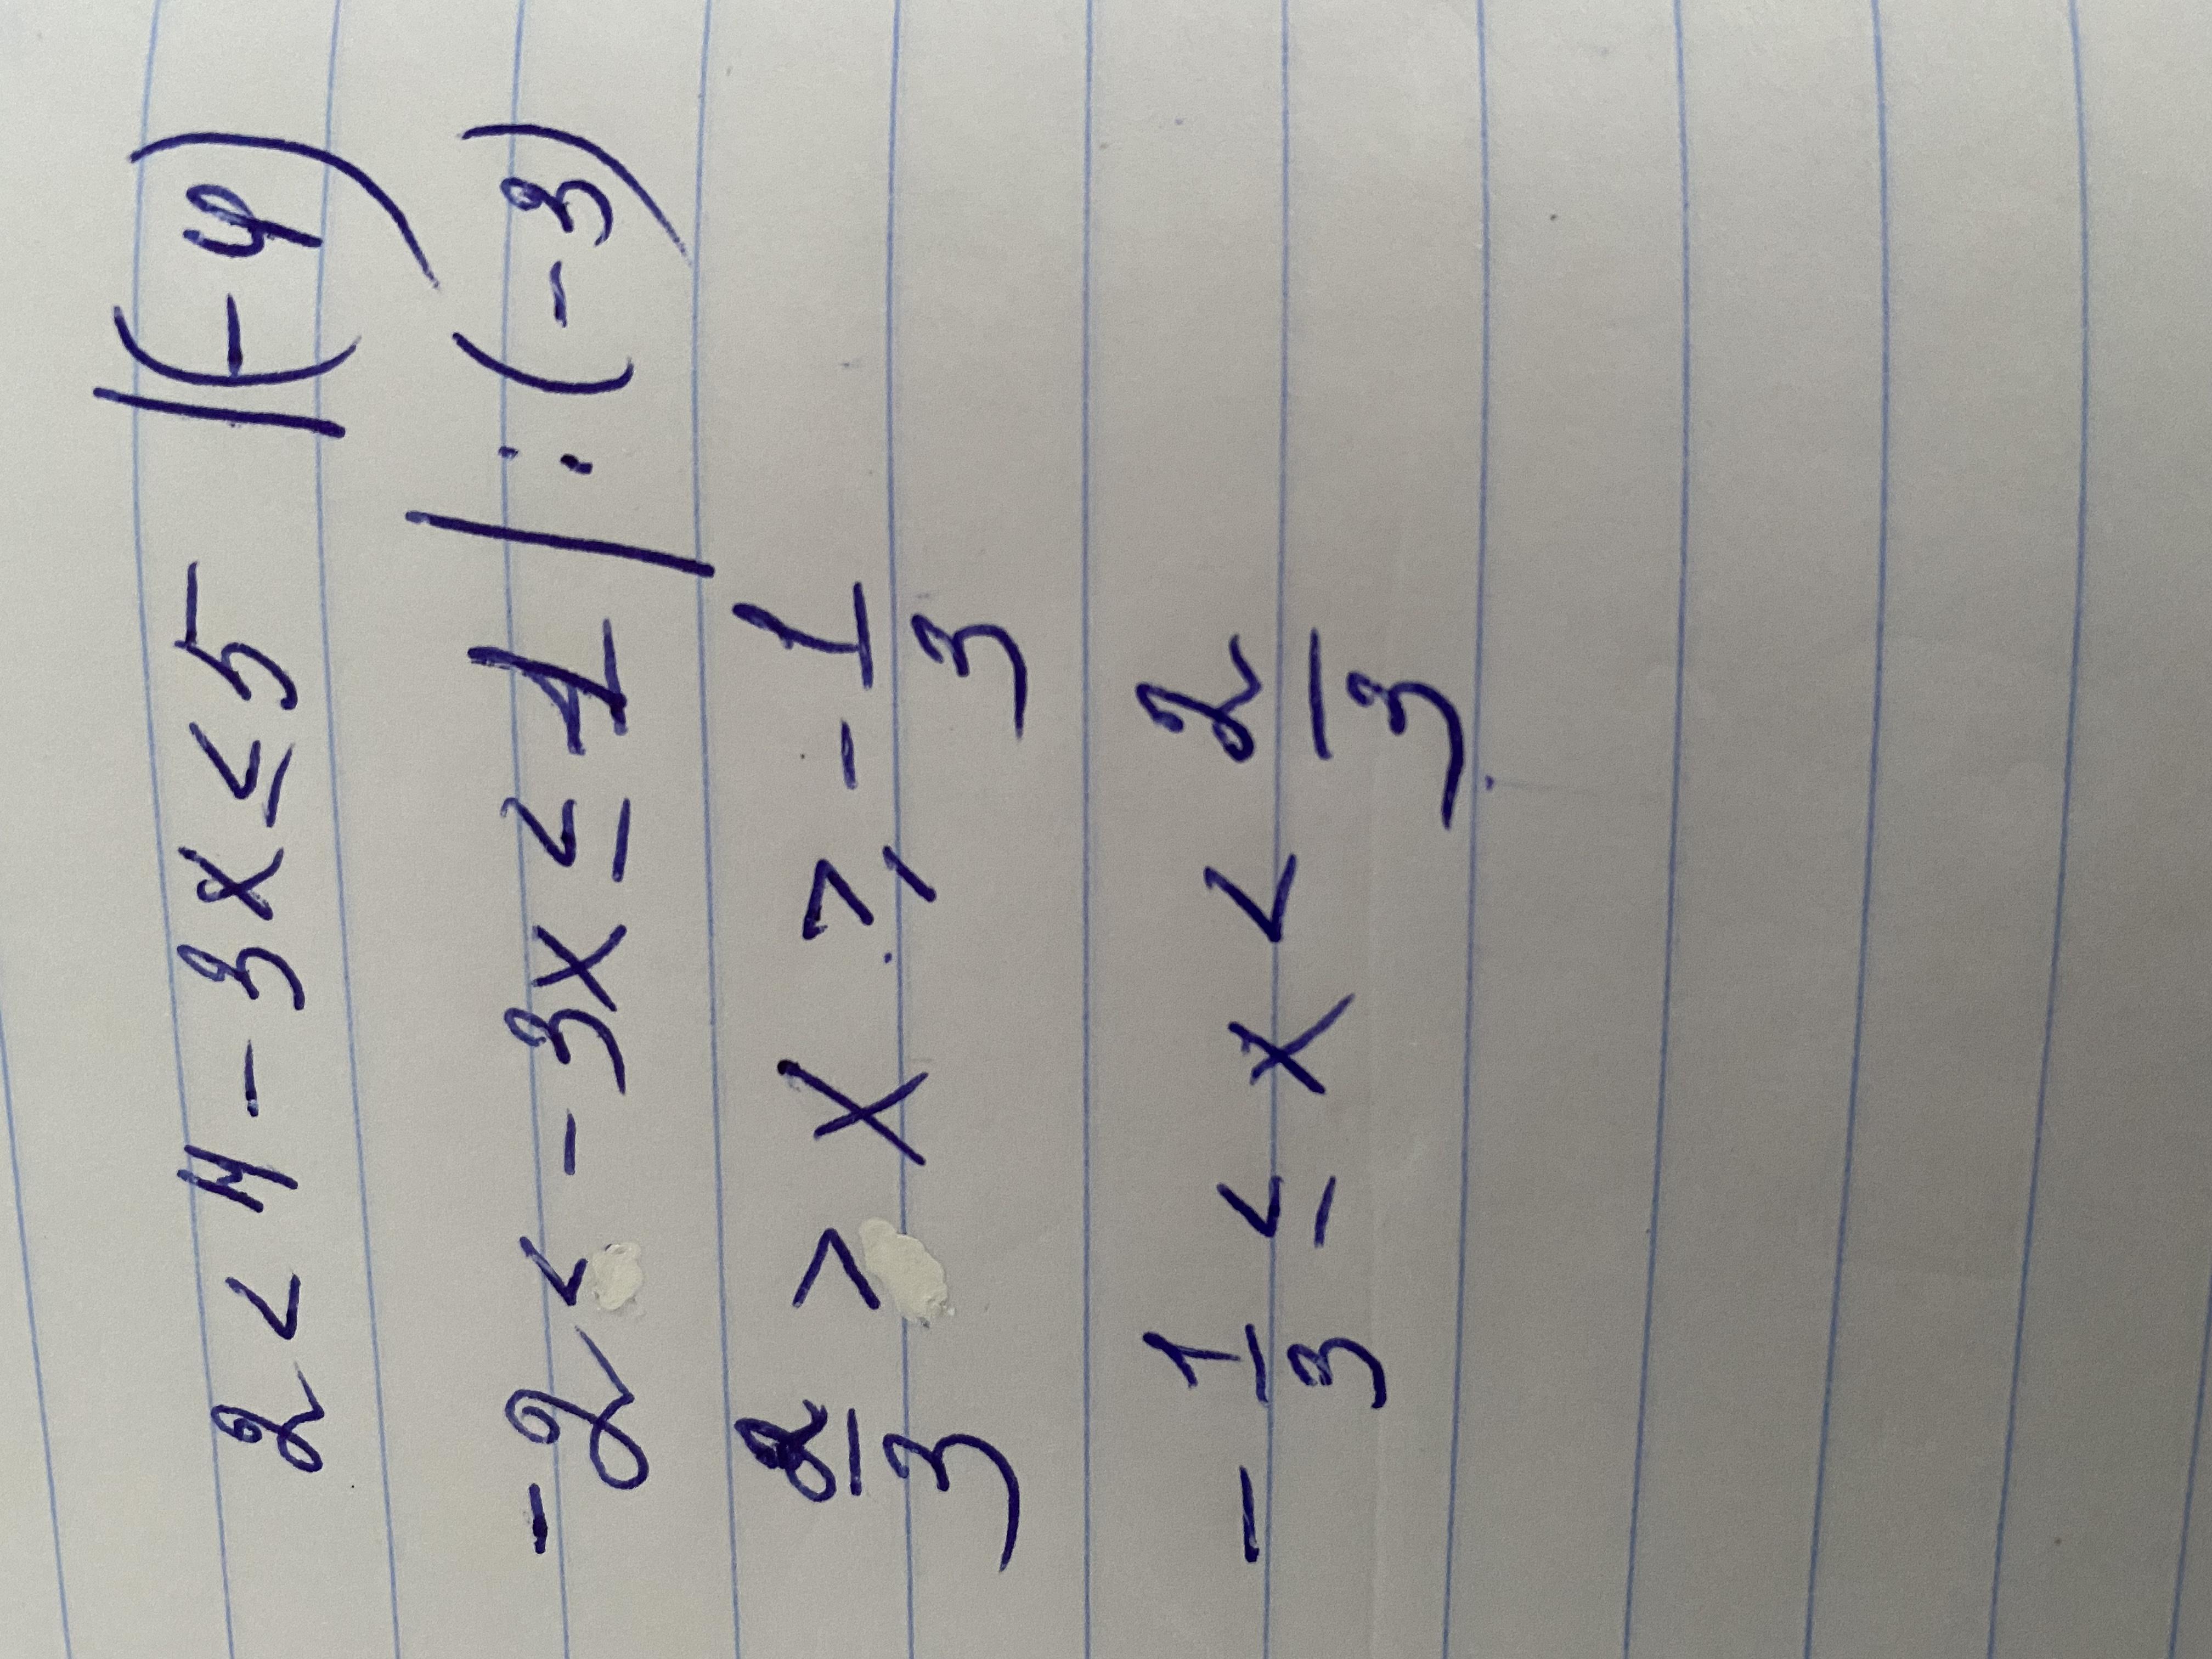 2 < 4 - 3x ≤ 5 |(-4)
-2 < -3x ≤ 1 | : (-3)
2/3 > x ≥ -1/3
-1/3 ≤ x < 2/3